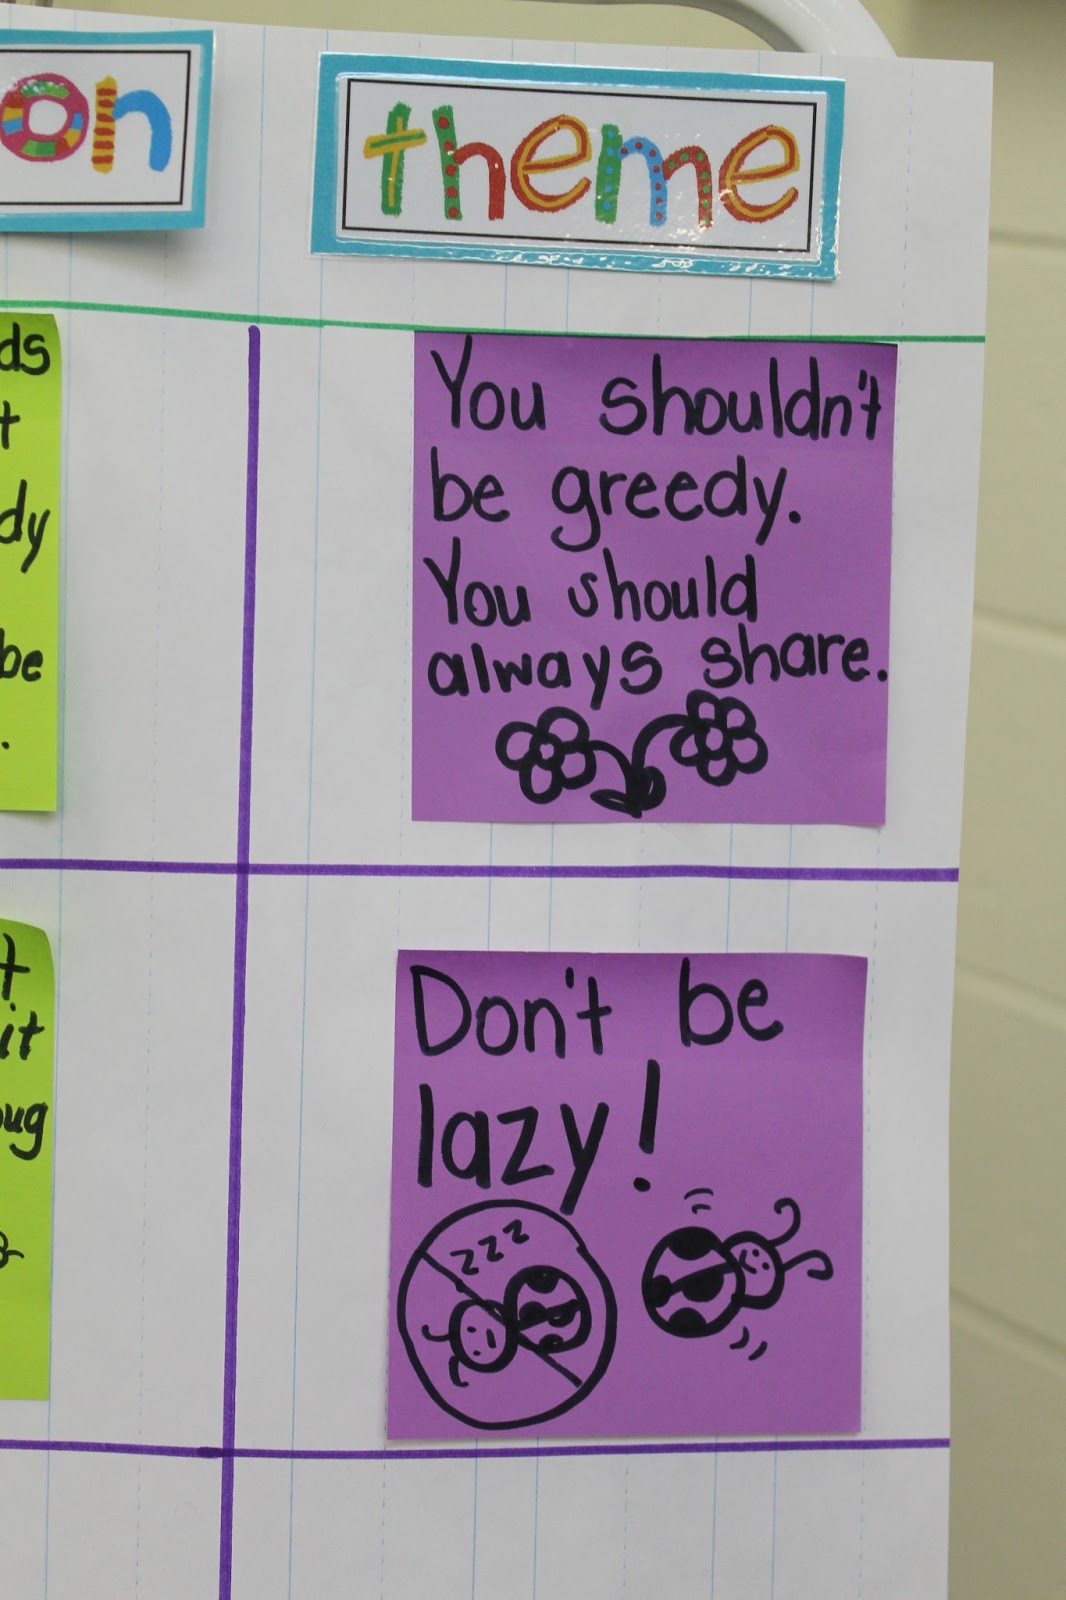 on
theme
ds
t
dy
be
.
You shouldn't
be greedy.
You should
always share.
t
it
ug
Don't be
lazy!
zzz